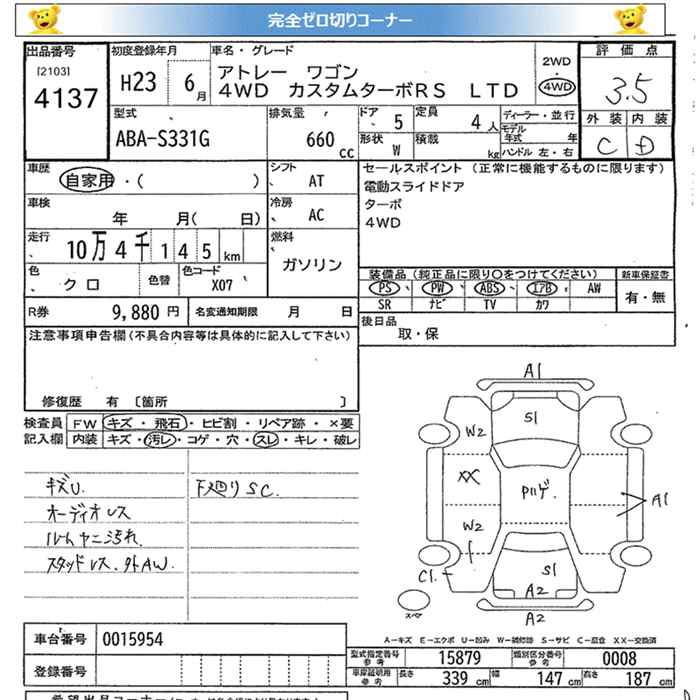 完全ゼロ切りコーナー
出品番号
[2103]
4137
初度登録年月
H23 6月
車名・グレード
アトレー ワゴン
4WD カスタムターボRS LTD
2WD
4WD
評価点
3.5
外装 内装
C D
型式
ABA-S331G
排気量
660 cc
ドア 5
形状 W
定員 4人
積載 kg
ディーラー・並行
モデル年式 年
ハンドル 左・右
車歴
自家用・( )
シフト
AT
車検
年 月( 日)
冷房
AC
走行
10万4千145km
燃料
ガソリン
色
クロ
色替
色コード
X07
セールスポイント(正常に機能するものに限ります)
電動スライドドア
ターボ
4WD
装備品(純正品に限り○をつけてください)
PS PW ABS エアB AW
SR ナビ TV カワ
新車保証書
有・無
R券 9,880円
名変通知期限 月 日
後日品
取・保
注意事項申告欄(不具合内容等は具体的に記入して下さい)
修復歴 有 [箇所 ]
検査員記入欄
FW キズ・飛石・ヒビ割・リペア跡・×要
内装 キズ・汚レ・コゲ・穴・スレ・キレ・破レ
キズU.
オーディオレス
ルームヤニ汚れ.
スタッドレス.外AW.
下廻りSC.
A1
S1
W2
XX
Pハゲ.
A1
W2
C1
S1
A2
A2
スペア
A-キズ E-エクボ U-凹み W-補修跡 S-サビ C-腐食 XX-交換済
車台番号 0015954
登録番号
型式指定番号 参考 15879
類別区分番号 参考 0008
車庫証明用 参考 長さ 339cm 幅 147cm 高さ 187cm